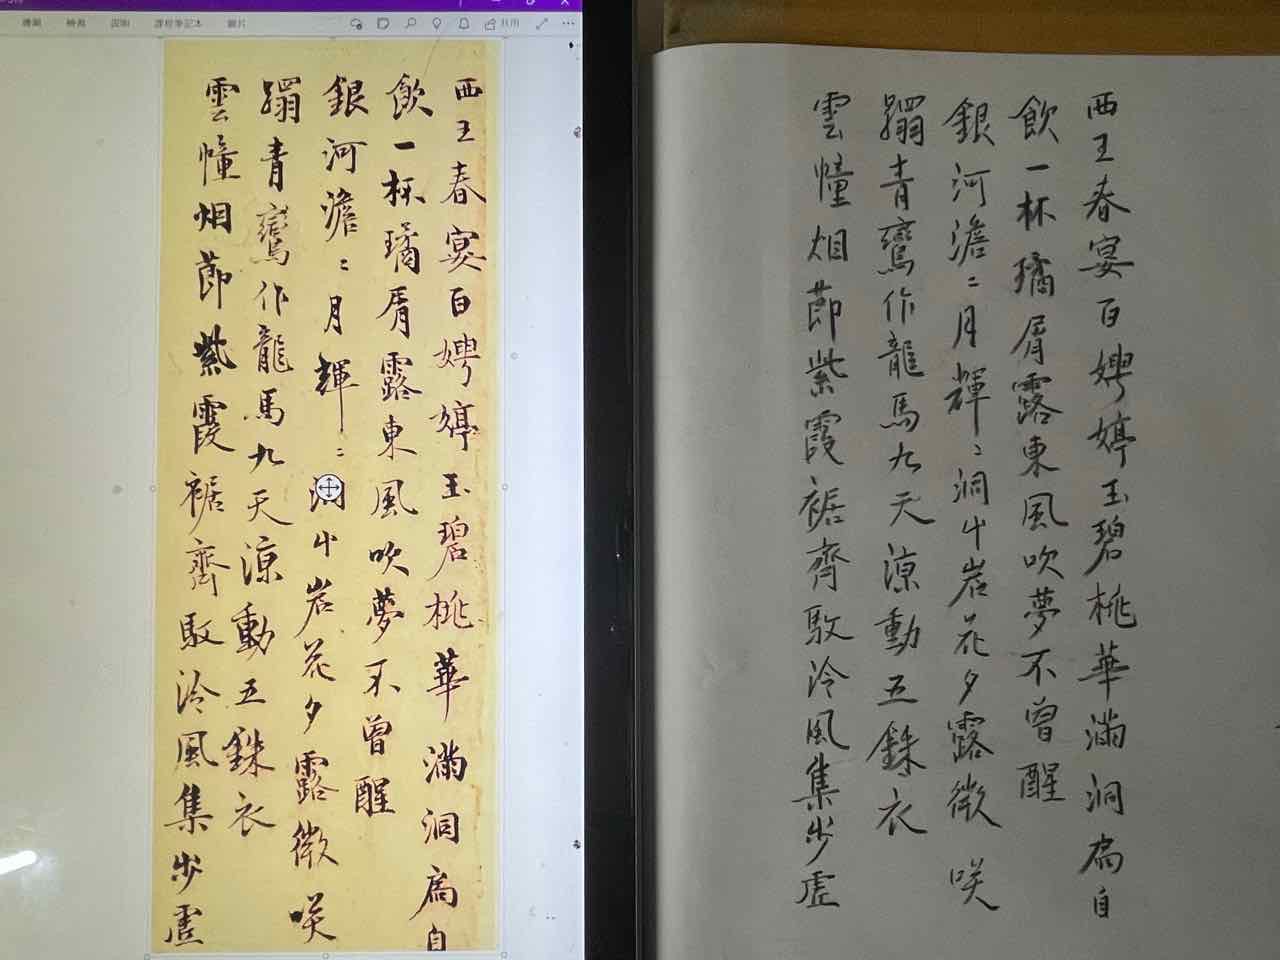 繪圖 檢視 說明 課程筆記本 圖片 共用
西王春宴百娉婷玉碧桃華滿洞扃自
飲一杯璚屑露東風吹夢不曾醒
銀河澹〻月輝〻洞中岩花夕露微咲
躡青鸞作龍馬九天涼動五銖衣
雲幢烟節紫霞裾齊馭泠風集步虛
西王春宴百娉婷玉碧桃華滿洞扃自
飲一杯璚屑露東風吹夢不曾醒
銀河澹〻月輝〻洞中岩花夕露微咲
躡青鸞作龍馬九天涼動五銖衣
雲幢烟節紫霞裾齊馭泠風集步虛